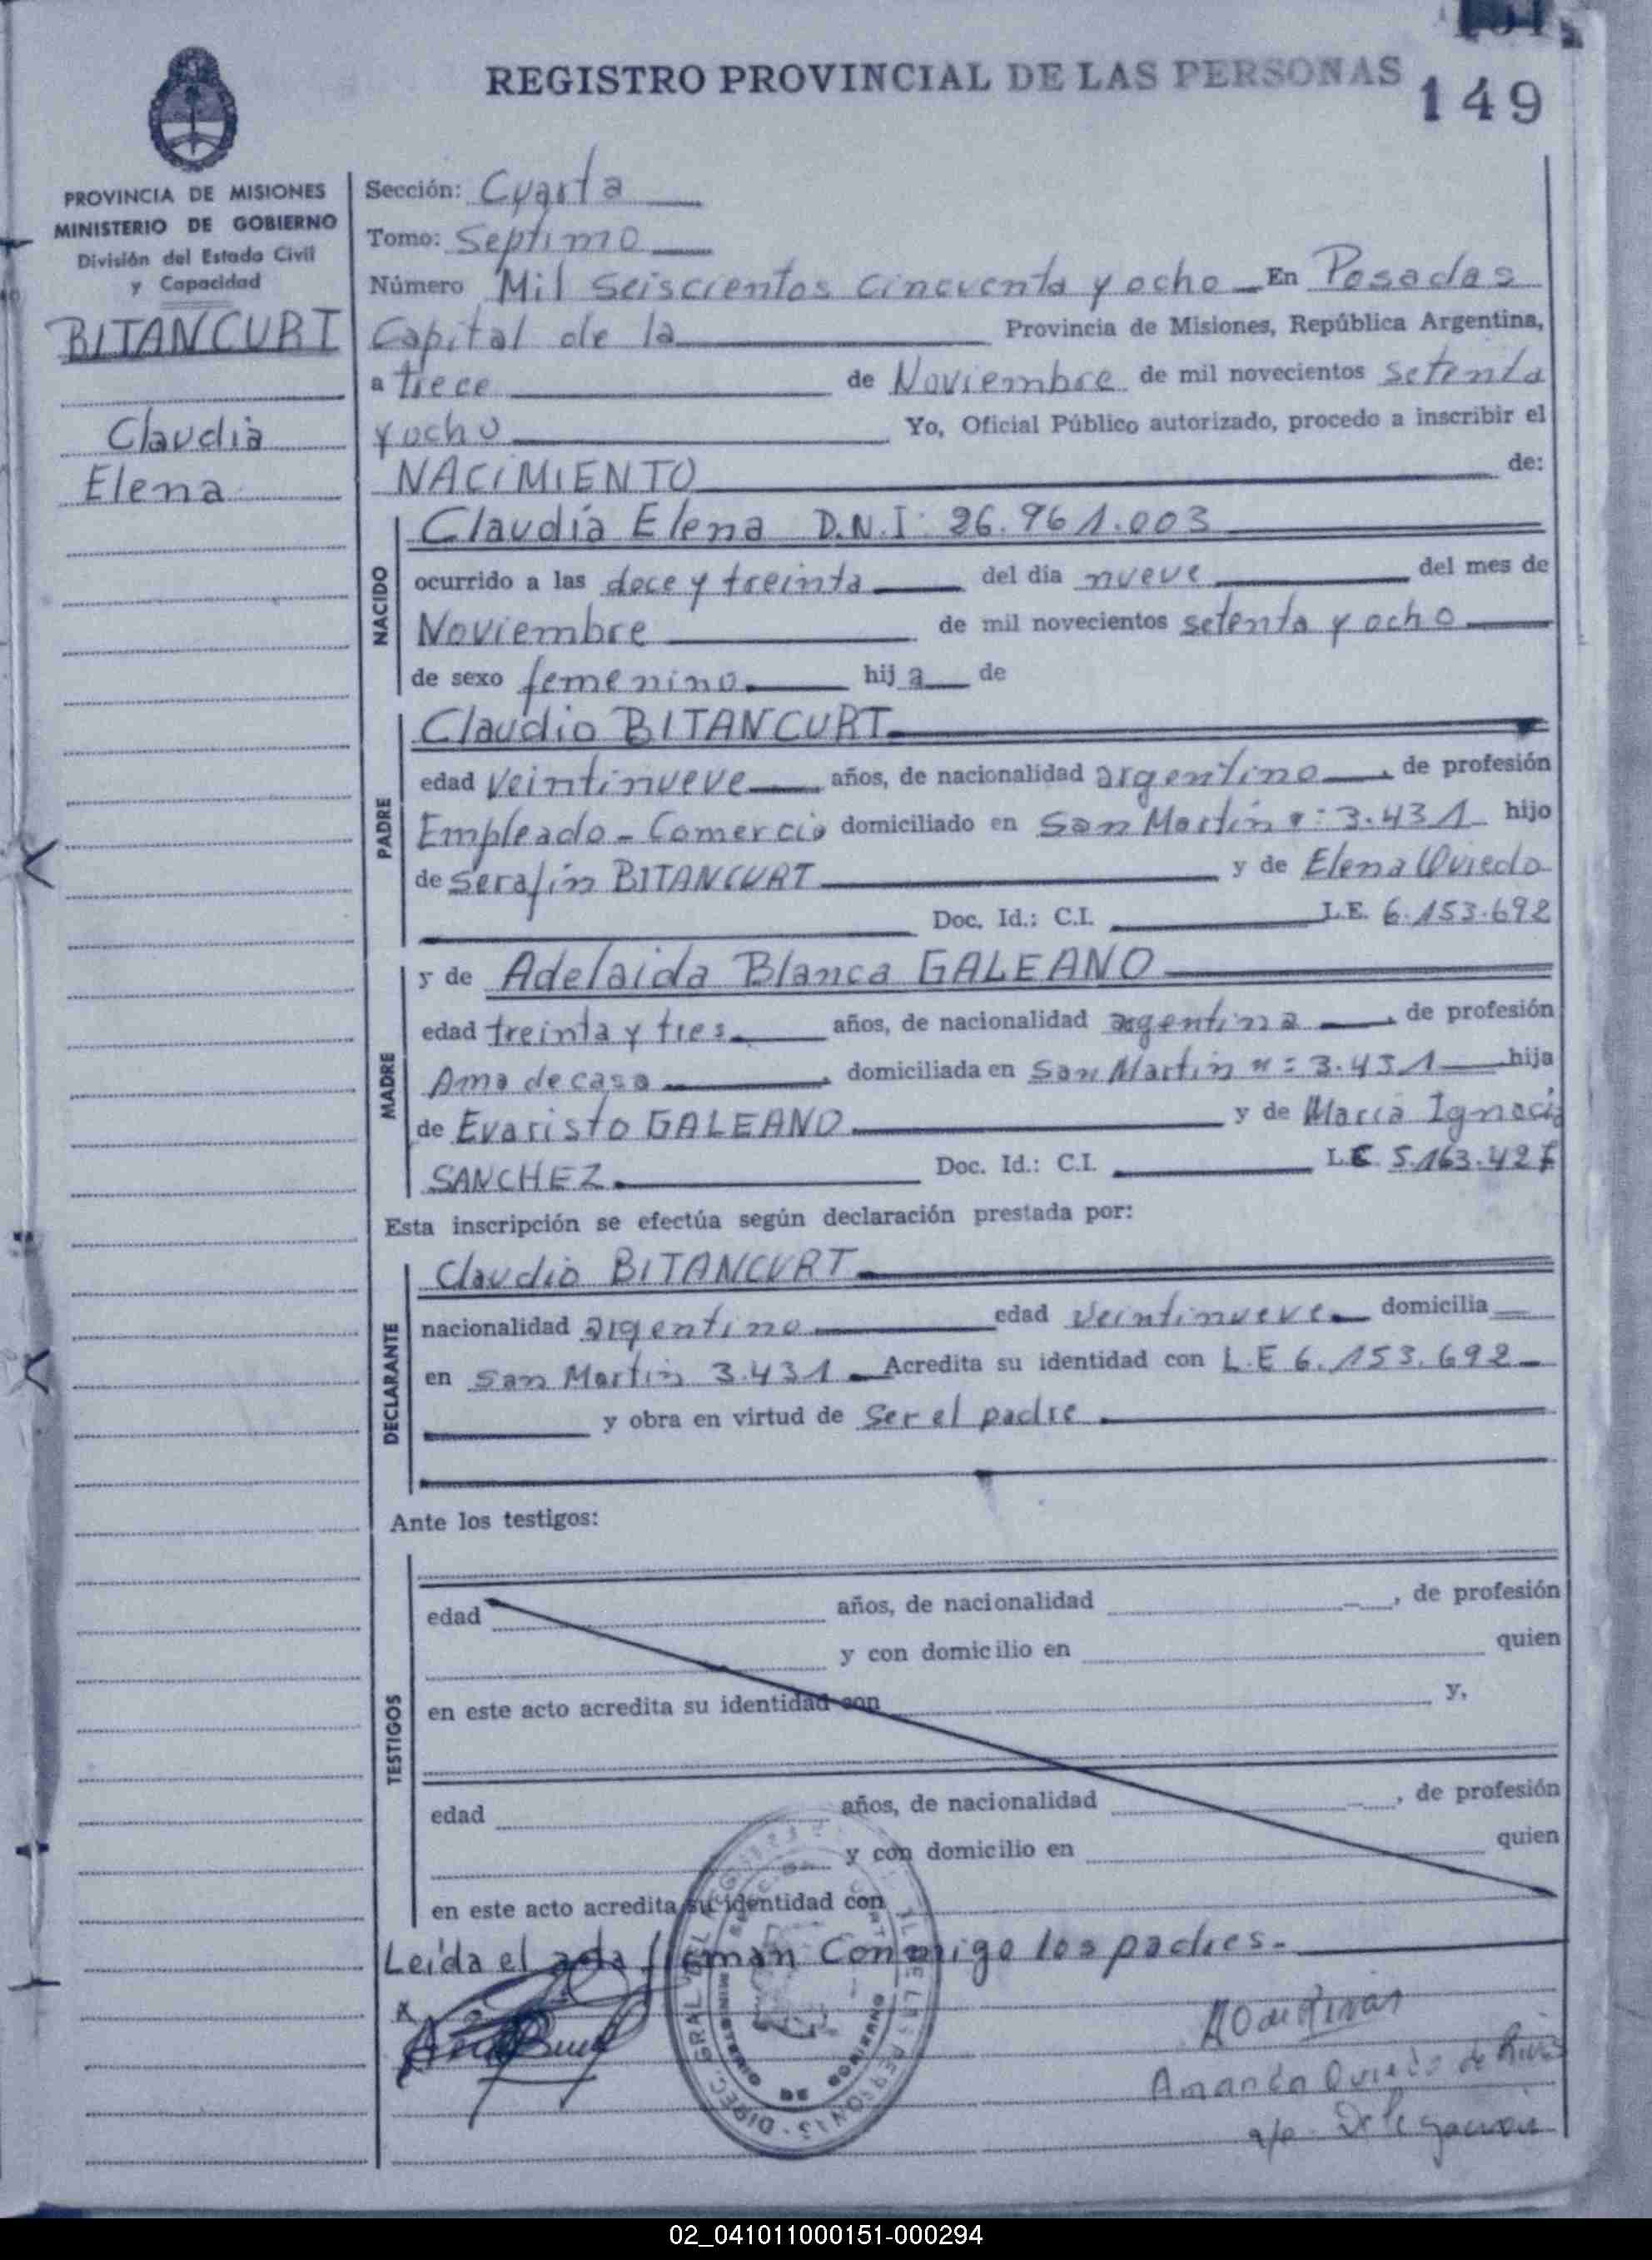 REGISTRO PROVINCIAL DE LAS PERSONAS
149
PROVINCIA DE MISIONES
MINISTERIO DE GOBIERNO
División del Estado Civil
y Capacidad
BITANCURT
Claudia
Elena
Sección: Cuarta
Tomo: Septimo
Número Mil seiscientos cincuenta y ocho En Posadas
Capital de la Provincia de Misiones, República Argentina,
a trece de Noviembre de mil novecientos setenta
y ocho Yo, Oficial Público autorizado, procedo a inscribir el
NACIMIENTO de:
NACIDO
Claudia Elena D.N.I: 26.961.003
ocurrido a las doce y treinta del día nueve del mes de
Noviembre de mil novecientos setenta y ocho
de sexo femenino hij a de
PADRE
Claudio BITANCURT
edad veintinueve años, de nacionalidad argentino, de profesión
Empleado - Comercio domiciliado en San Martín n: 3.431 hijo
de Serafín BITANCURT y de Elena Oviedo
Doc. Id.: C.I. L.E. 6.153.692
MADRE
y de Adelaida Blanca GALEANO
edad treinta y tres años, de nacionalidad argentina, de profesión
Ama de casa, domiciliada en San Martín n: 3.431 hija
de Evaristo GALEANO y de María Ignacia
SANCHEZ Doc. Id.: C.I. L.C 5.163.427
Esta inscripción se efectúa según declaración prestada por:
DECLARANTE
Claudio BITANCURT
nacionalidad argentino edad veintinueve domicilia
en San Martín 3.431 Acredita su identidad con L.E 6.153.692
y obra en virtud de ser el padre
Ante los testigos:
TESTIGOS
edad años, de nacionalidad, de profesión
y con domicilio en quien
en este acto acredita su identidad con y,
edad años, de nacionalidad, de profesión
y con domicilio en quien
en este acto acredita su identidad con
Leída el acta firman conmigo los padres.
DIREC. GRAL DEL REGISTRO DE LAS PERSONAS
MINISTERIO DE GOBIERNO
Oviedo de
Delegación
02_041011000151-000294